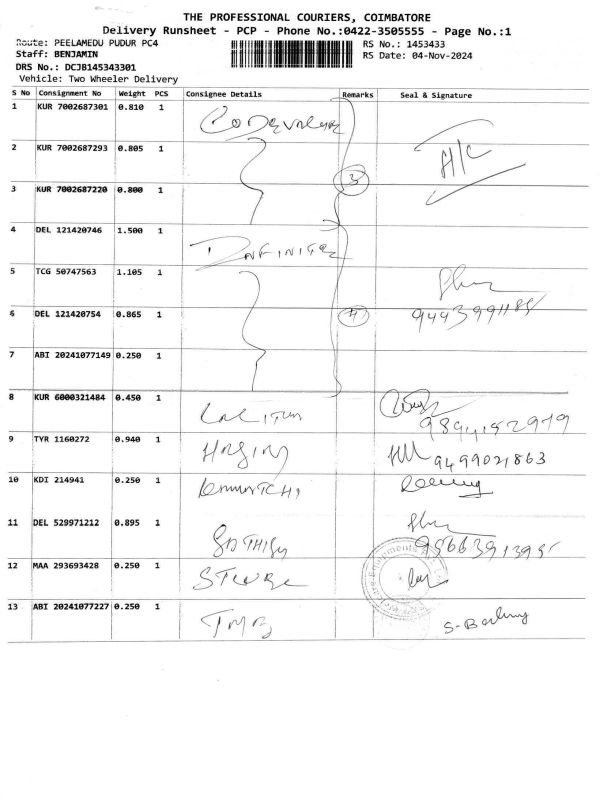 THE PROFESSIONAL COURIERS, COIMBATORE
Delivery Runsheet - PCP - Phone No.:0422-3505555 - Page No.:1
Route: PEELAMEDU PUDUR PC4
RS No.: 1453433
Staff: BENJAMIN
RS Date: 04-Nov-2024
DRS No.: DCJB145343301
Vehicle: Two Wheeler Delivery
S No Consignment No Weight PCS Consignee Details Remarks Seal & Signature
1 KUR 7002687301 0.810 1
2 KUR 7002687293 0.805 1
H/C
3 KUR 7002687220 0.800 1 3
4 DEL 121420746 1.500 1 INFINITE
5 TCG 50747563 1.105 1
6 DEL 121420754 0.865 1 4
7 ABI 20241077149 0.250 1
8 KUR 6000321484 0.450 1
9 TYR 1160272 0.940 1 9499021863
10 KDI 214941 0.250 1
11 DEL 529971212 0.895 1
12 MAA 293693428 0.250 1
13 ABI 20241077227 0.250 1 TMB